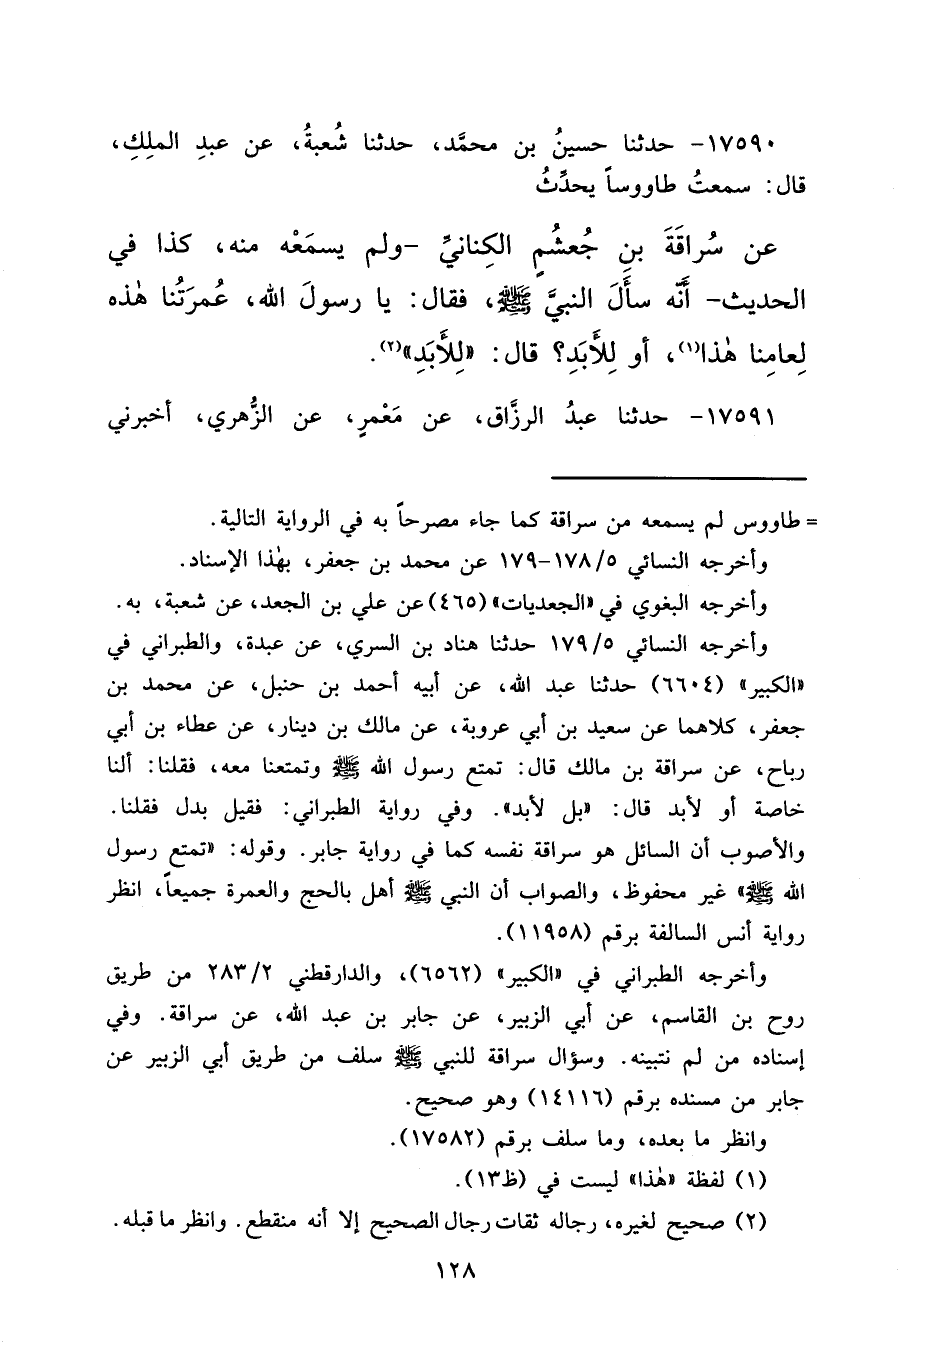 ١٧٥٩٠- حدثنا حسينُ بن محمَّد، حدثنا شُعبةُ، عن عبدِ الملِكِ،
قال: سمعتُ طاووساً يحدِّثُ
عن سُراقَةَ بنِ جُعشُمٍ الكِنانيِّ -ولم يسمَعْه منه، كذا في
الحديث- أَنَّه سأَلَ النبيَّ ﷺ، فقال: يا رسولَ الله، عُمرَتُنا هٰذه
لِعامِنا هٰذا(١)، أو لِلأَبَدِ؟ قال: «لِلأَبَدِ»(٢).
١٧٥٩١- حدثنا عبدُ الرزَّاق، عن مَعْمرٍ، عن الزُّهري، أخبرني
= طاووس لم يسمعه من سراقة كما جاء مصرحاً به في الرواية التالية.
وأخرجه النسائي ١٧٨/٥-١٧٩ عن محمد بن جعفر، بهٰذا الإسناد.
وأخرجه البغوي في «الجعديات» (٤٦٥) عن علي بن الجعد، عن شعبة، به.
وأخرجه النسائي ١٧٩/٥ حدثنا هناد بن السري، عن عبدة، والطبراني في
«الكبير» (٦٦٠٤) حدثنا عبد الله، عن أبيه أحمد بن حنبل، عن محمد بن
جعفر، كلاهما عن سعيد بن أبي عروبة، عن مالك بن دينار، عن عطاء بن أبي
رباح، عن سراقة بن مالك قال: تمتع رسول الله ﷺ وتمتعنا معه، فقلنا: ألنا
خاصة أو لأبد قال: «بل لأبد». وفي رواية الطبراني: فقيل بدل فقلنا.
والأصوب أن السائل هو سراقة نفسه كما في رواية جابر. وقوله: «تمتع رسول
الله ﷺ» غير محفوظ، والصواب أن النبي ﷺ أهل بالحج والعمرة جميعاً، انظر
رواية أنس السالفة برقم (١١٩٥٨).
وأخرجه الطبراني في «الكبير» (٦٥٦٢)، والدارقطني ٢٨٣/٢ من طريق
روح بن القاسم، عن أبي الزبير، عن جابر بن عبد الله، عن سراقة. وفي
إسناده من لم نتبينه. وسؤال سراقة للنبي ﷺ سلف من طريق أبي الزبير عن
جابر من مسنده برقم (١٤١١٦) وهو صحيح.
وانظر ما بعده، وما سلف برقم (١٧٥٨٢).
(١) لفظة «هٰذا» ليست في (ظ١٣).
(٢) صحيح لغيره، رجاله ثقات رجال الصحيح إلا أنه منقطع. وانظر ما قبله.
١٢٨